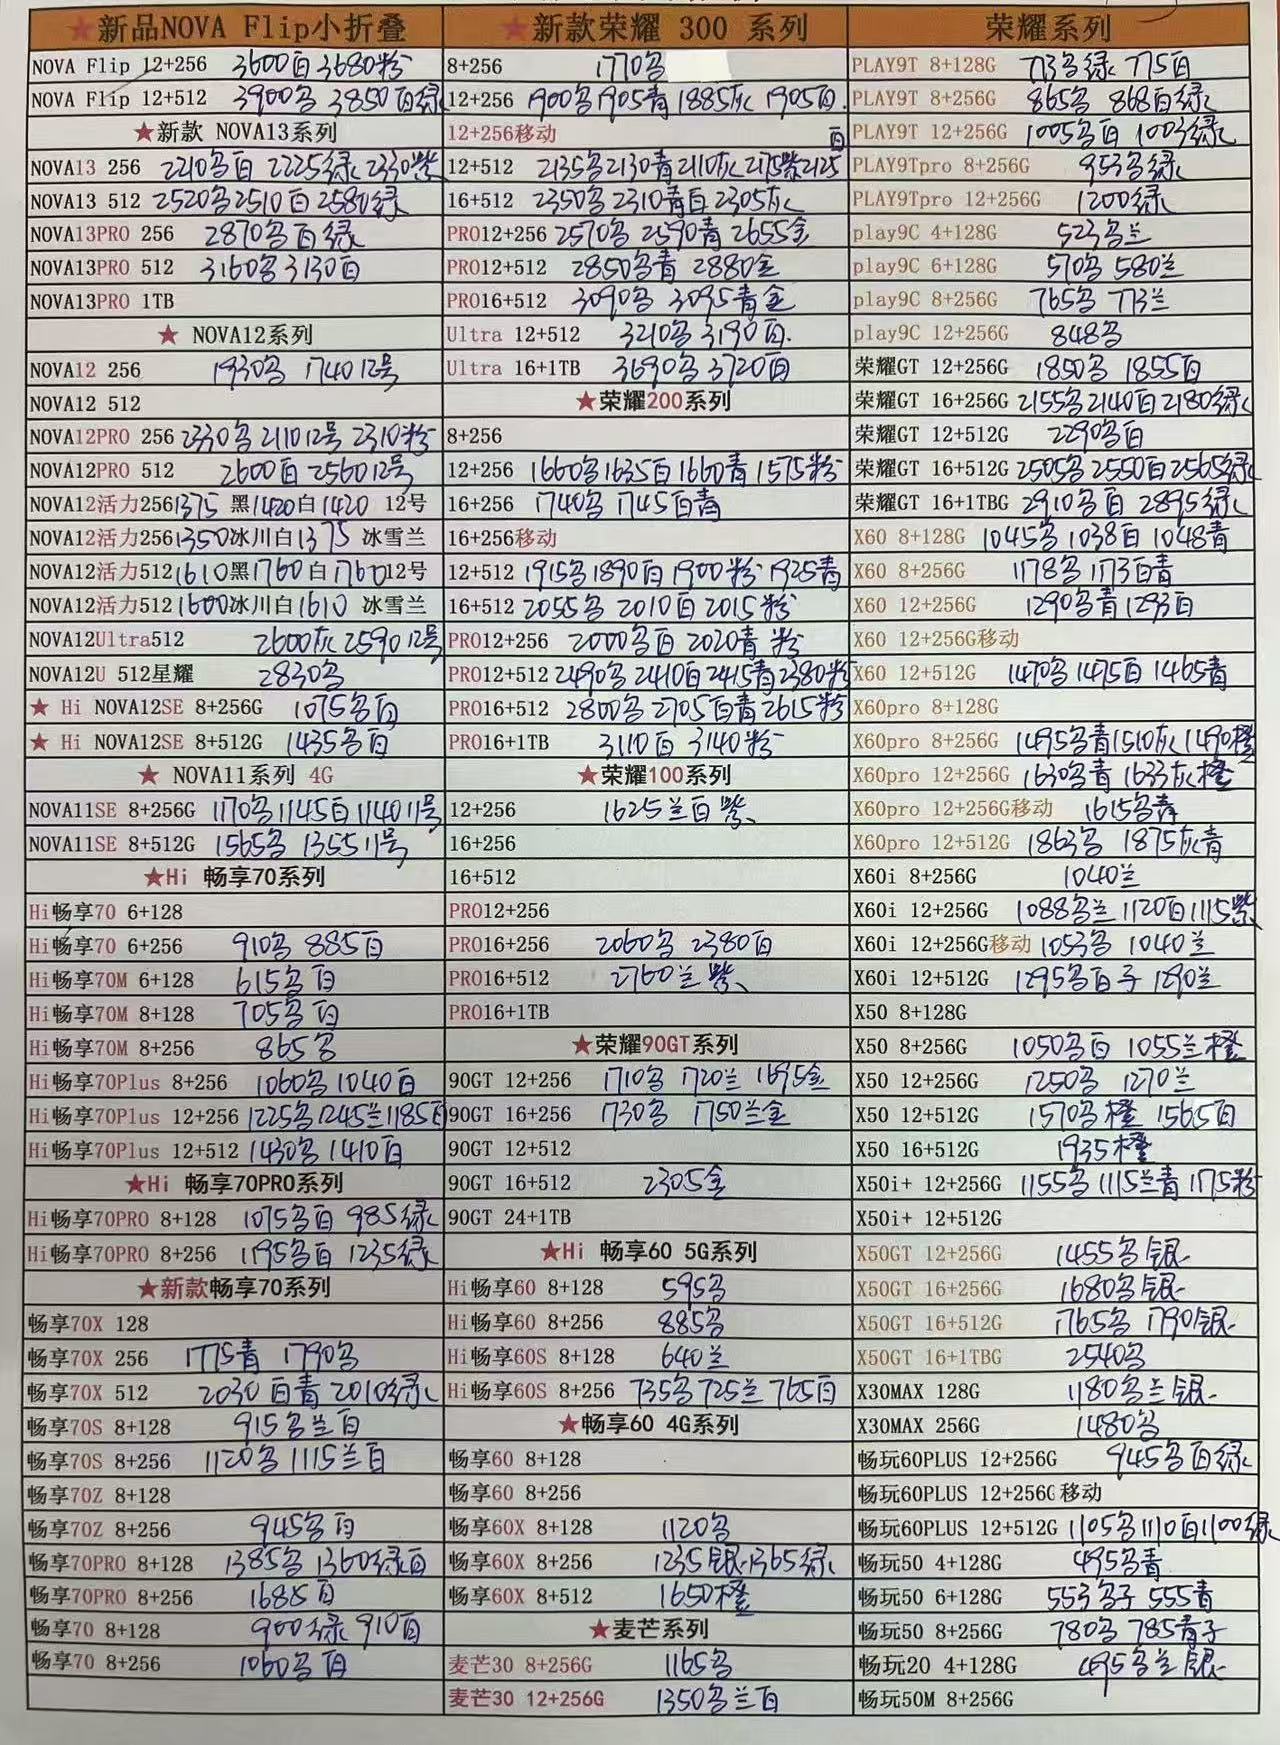 ★新品NOVA Flip小折叠
NOVA Flip 12+256 3600百 3680粉
NOVA Flip 12+512 3900名 3850百绿
★新款 NOVA13系列
NOVA13 256 2210名百 2225绿 2230紫
NOVA13 512 2520名 2510百 2580绿
NOVA13PRO 256 2870名百绿
NOVA13PRO 512 3160名 3130百
NOVA13PRO 1TB
★ NOVA12系列
NOVA12 256 1930名 1740 12号
NOVA12 512
NOVA12PRO 256 2330名 2110 12号 2310粉
NOVA12PRO 512 2600百 2560 12号
NOVA12活力256 1375 黑1420白1420 12号
NOVA12活力256 1350冰川白1375 冰雪兰
NOVA12活力512 1610黑1760白1760 12号
NOVA12活力512 1600冰川白1610 冰雪兰
NOVA12Ultra512 2600灰 2590 12号
NOVA12U 512星耀 2830名
★ Hi NOVA12SE 8+256G 1075名百
★ Hi NOVA12SE 8+512G 1435名百
★ NOVA11系列 4G
NOVA11SE 8+256G 1170名 1145百 1140 11号
NOVA11SE 8+512G 1565名 1355 11号
★Hi 畅享70系列
Hi畅享70 6+128
Hi畅享70 6+256 910名 885百
Hi畅享70M 6+128 615名百
Hi畅享70M 8+128 705名百
Hi畅享70M 8+256 865名
Hi畅享70Plus 8+256 1060名 1040百
Hi畅享70Plus 12+256 1225名 1245兰 1185百
Hi畅享70Plus 12+512 1430名 1410百
★Hi 畅享70PRO系列
Hi畅享70PRO 8+128 1075名百 985绿
Hi畅享70PRO 8+256 1195名百 1235绿
★新款畅享70系列
畅享70X 128
畅享70X 256 1775青 1790名
畅享70X 512 2030百青 2010绿
畅享70S 8+128 915名兰百
畅享70S 8+256 1120名 1115兰百
畅享70Z 8+128
畅享70Z 8+256 945名百
畅享70PRO 8+128 1385名 1360绿百
畅享70PRO 8+256 1685百
畅享70 8+128 900绿 910百
畅享70 8+256 1060名百
★新款荣耀 300 系列
8+256 1770名
12+256 1900名 1905青 1885灰 1905百
12+256移动 百
12+512 2135名 2130青 2110灰 2175紫 2125
16+512 2350名 2310青百 2305灰
PRO12+256 2570名 2590青 2655金
PRO12+512 2850名青 2880金
PRO16+512 3090名 3095青金
Ultra 12+512 3210名 3190百
Ultra 16+1TB 3690名 3720百
★荣耀200系列
8+256
12+256 1660名 1635百 1660青 1575粉
16+256 1740名 1745百青
16+256移动
12+512 1915名 1890百 1900粉 1925青
16+512 2055名 2010百 2015粉
PRO12+256 2000名百 2020青粉
PRO12+512 2490名 2410百 2415青 2380粉
PRO16+512 2800名 2705百青 2615粉
PRO16+1TB 3110百 3140粉
★荣耀100系列
12+256 1625兰百紫
16+256
16+512
PRO12+256
PRO16+256 2060名 2380百
PRO16+512 2760兰紫
PRO16+1TB
★荣耀90GT系列
90GT 12+256 1710名 1720兰 1695金
90GT 16+256 1730名 1750兰金
90GT 12+512
90GT 16+512 2305金
90GT 24+1TB
★Hi 畅享60 5G系列
Hi畅享60 8+128 595名
Hi畅享60 8+256 885名
Hi畅享60S 8+128 640兰
Hi畅享60S 8+256 735名 725兰 765百
★畅享60 4G系列
畅享60 8+128
畅享60 8+256
畅享60X 8+128 1120名
畅享60X 8+256 1235银 1365绿
畅享60X 8+512 1650橙
★麦芒系列
麦芒30 8+256G 1165名
麦芒30 12+256G 1350名兰百
荣耀系列
PLAY9T 8+128G 773名绿 775百
PLAY9T 8+256G 865名 868百绿
PLAY9T 12+256G 1005名百 1003绿
PLAY9Tpro 8+256G 953名绿
PLAY9Tpro 12+256G 1200绿
play9C 4+128G 523名兰
play9C 6+128G 570名 580兰
play9C 8+256G 765名 773兰
play9C 12+256G 848名
荣耀GT 12+256G 1850名 1855百
荣耀GT 16+256G 2155名 2140百 2180绿
荣耀GT 12+512G 2290名百
荣耀GT 16+512G 2505名 2550百 2565绿
荣耀GT 16+1TBG 2910名百 2895绿
X60 8+128G 1045名 1038百 1048青
X60 8+256G 1178名 1173百青
X60 12+256G 1290名青 1293百
X60 12+256G移动
X60 12+512G 1470名 1475百 1465青
X60pro 8+128G
X60pro 8+256G 1495名青 1510灰 1490橙
X60pro 12+256G 1630名青 1633灰橙
X60pro 12+256G移动 1615名青
X60pro 12+512G 1863名 1875灰青
X60i 8+256G 1040兰
X60i 12+256G 1088名兰 1120百 1115紫
X60i 12+256G移动 1053名 1040兰
X60i 12+512G 1295名百子 1290兰
X50 8+128G
X50 8+256G 1050名百 1055兰橙
X50 12+256G 1250名 1270兰
X50 12+512G 1570名橙 1565百
X50 16+512G 1935橙
X50i+ 12+256G 1155名 1115兰青 1175粉
X50i+ 12+512G
X50GT 12+256G 1455名银
X50GT 16+256G 1680名银
X50GT 16+512G 1765名 1790银
X50GT 16+1TBG 2540名
X30MAX 128G 1180名兰银
X30MAX 256G 1480名
畅玩60PLUS 12+256G 945名百绿
畅玩60PLUS 12+256G移动
畅玩60PLUS 12+512G 1105名 1110百 1100绿
畅玩50 4+128G 495名青
畅玩50 6+128G 553名子 555青
畅玩50 8+256G 780名 785青子
畅玩20 4+128G 495名兰银
畅玩50M 8+256G